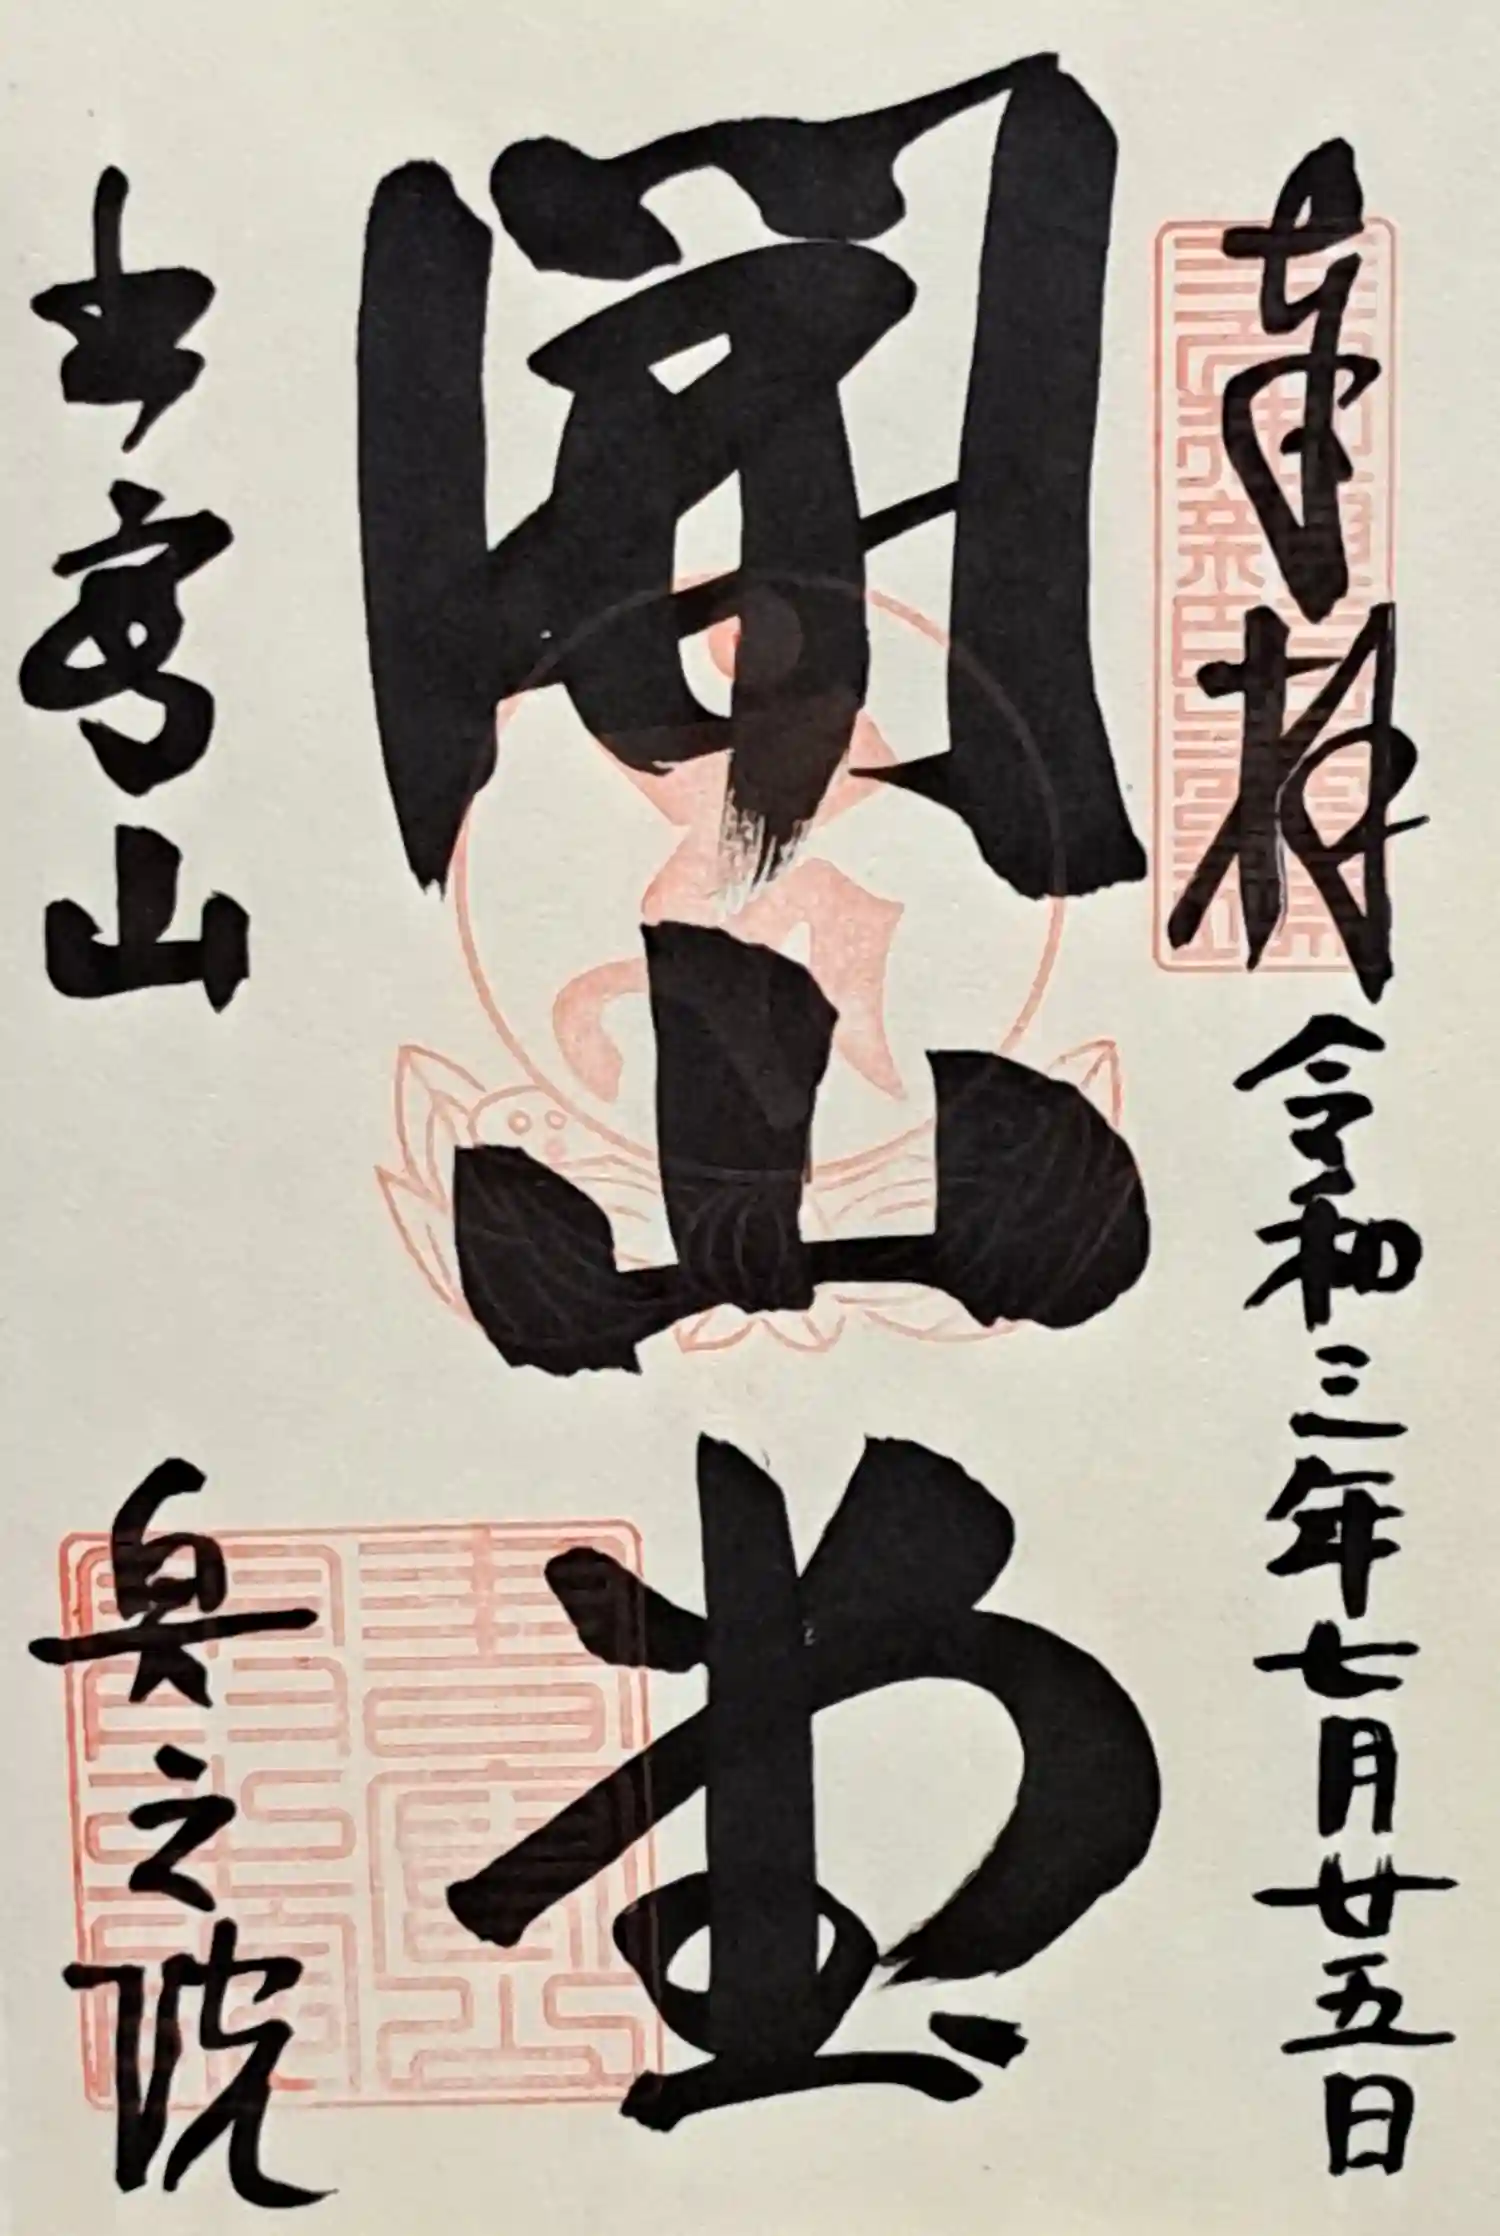 奉拝 令和三年七月廿五日
開山堂
書寫山 奥之院